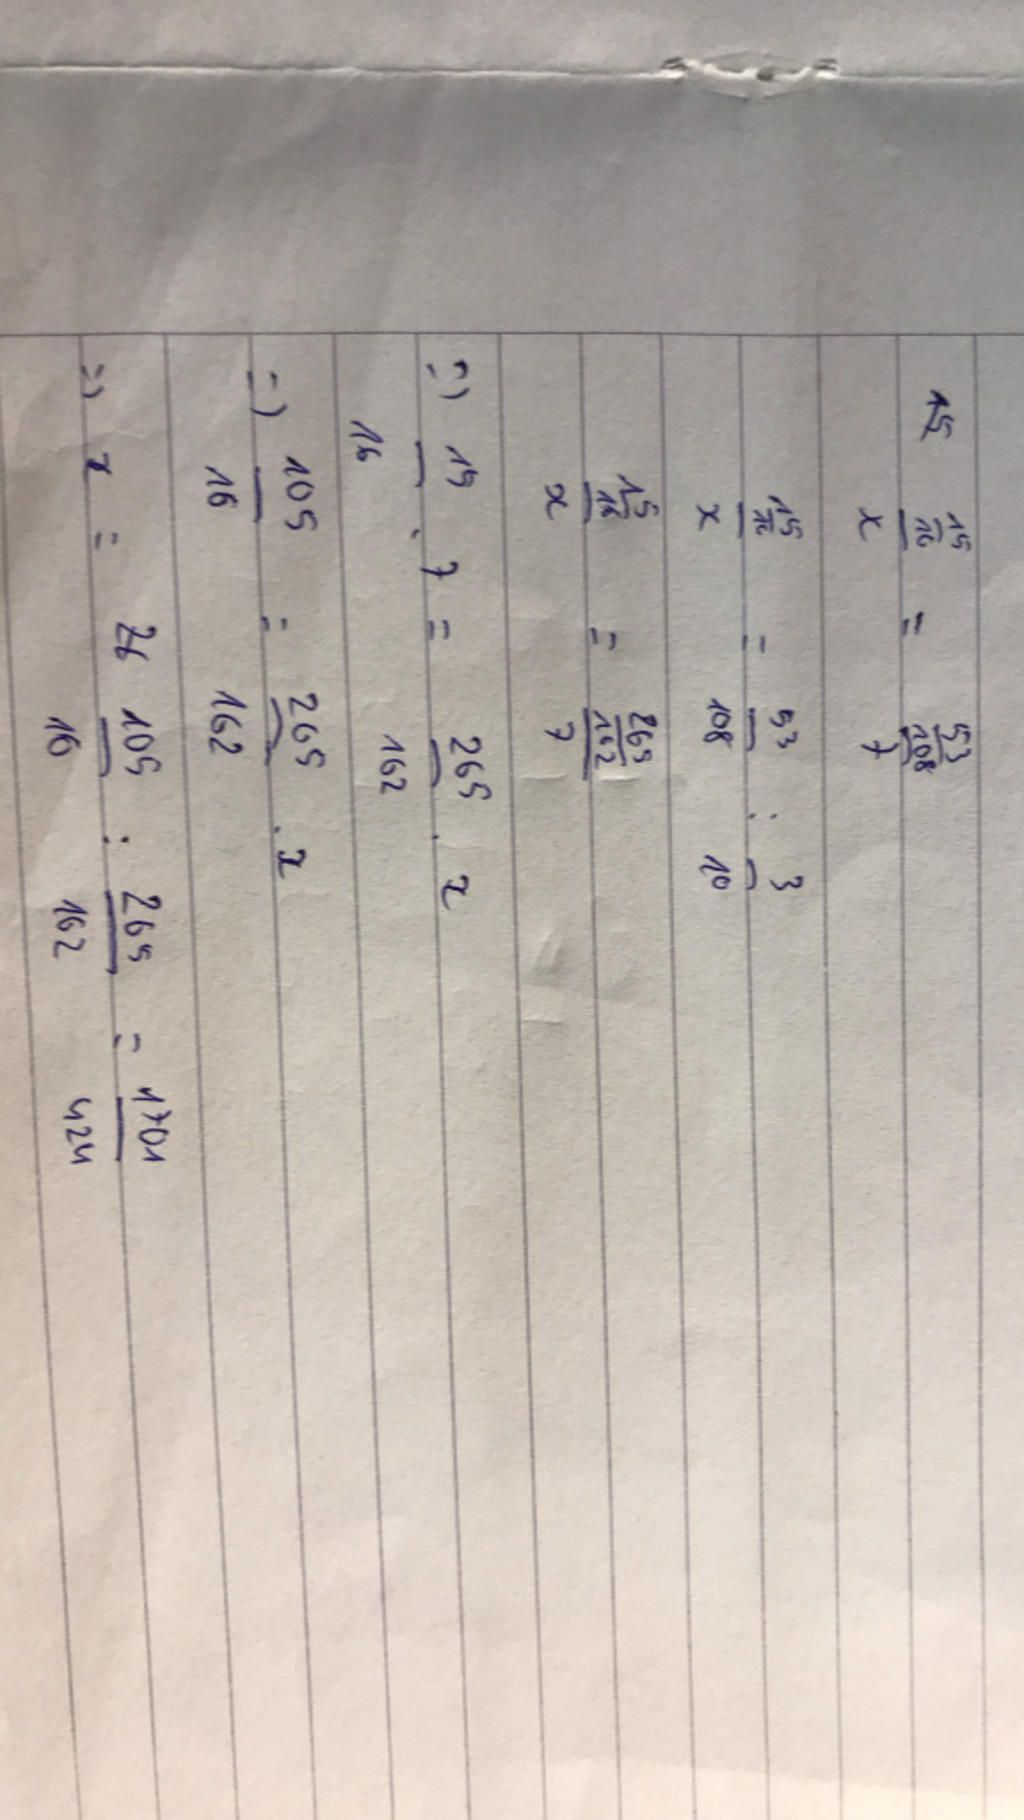 15 15/16 / x = 53/108 / 7
15/16 / x = 53/108 : 3/10
15/16 / x = 265/162 / 7
=) 15/16 . 7 = 265/162 . x
=) 105/16 = 265/162 . x
=) x = 105/16 : 265/162 = 1701/424